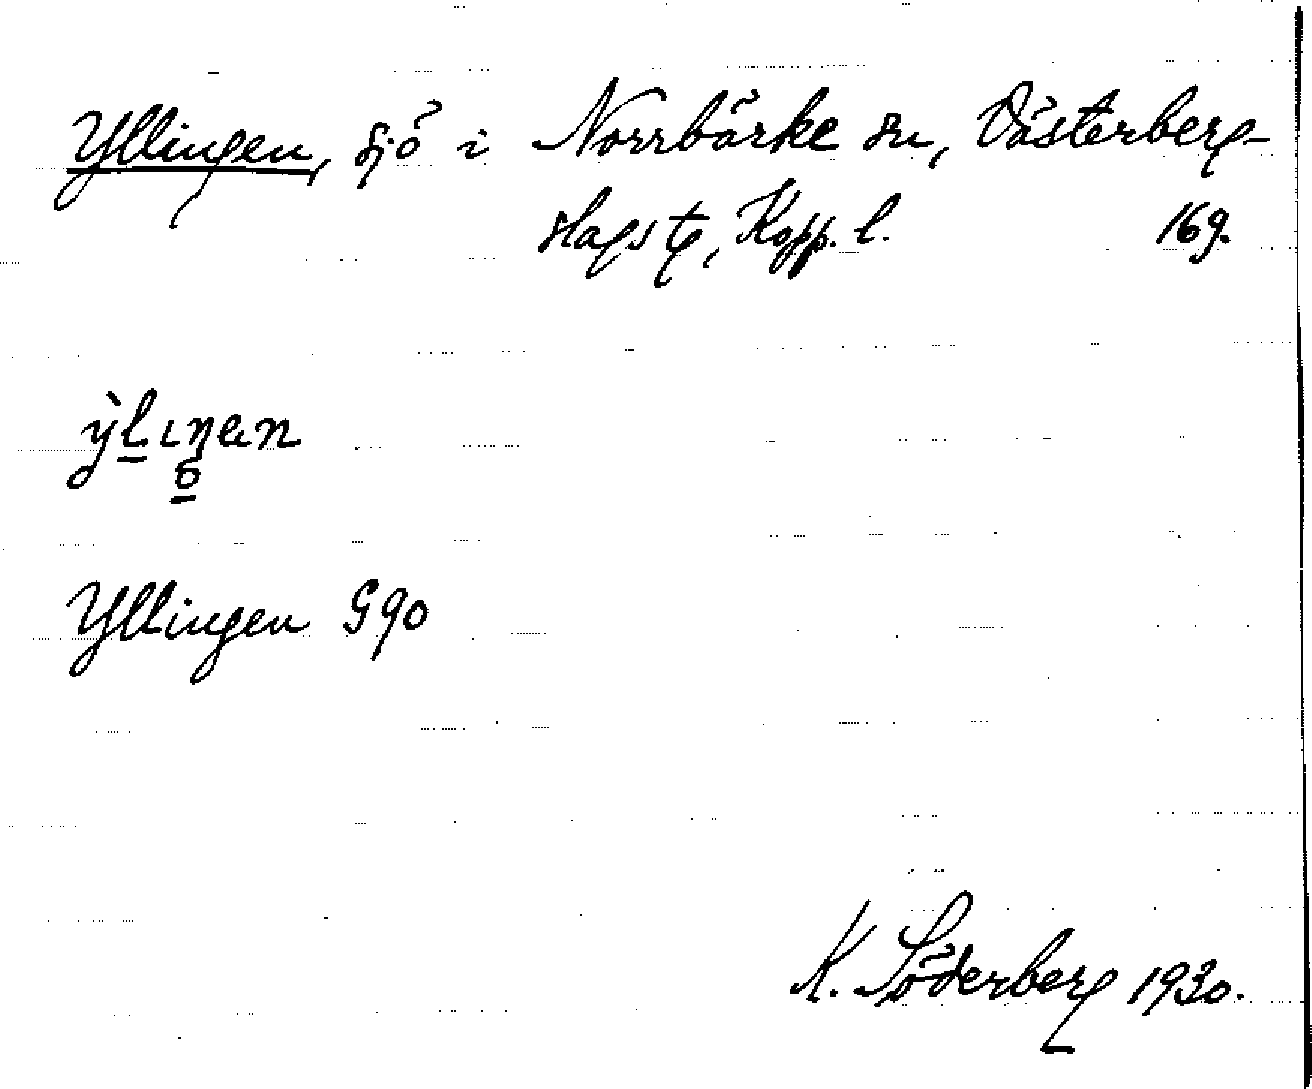 Yllingen, sjö i Norrbärke sn, Västerberg-
slags tg, Kopp. l. 169.
Yllingen G 90
K. Söderberg 1930.